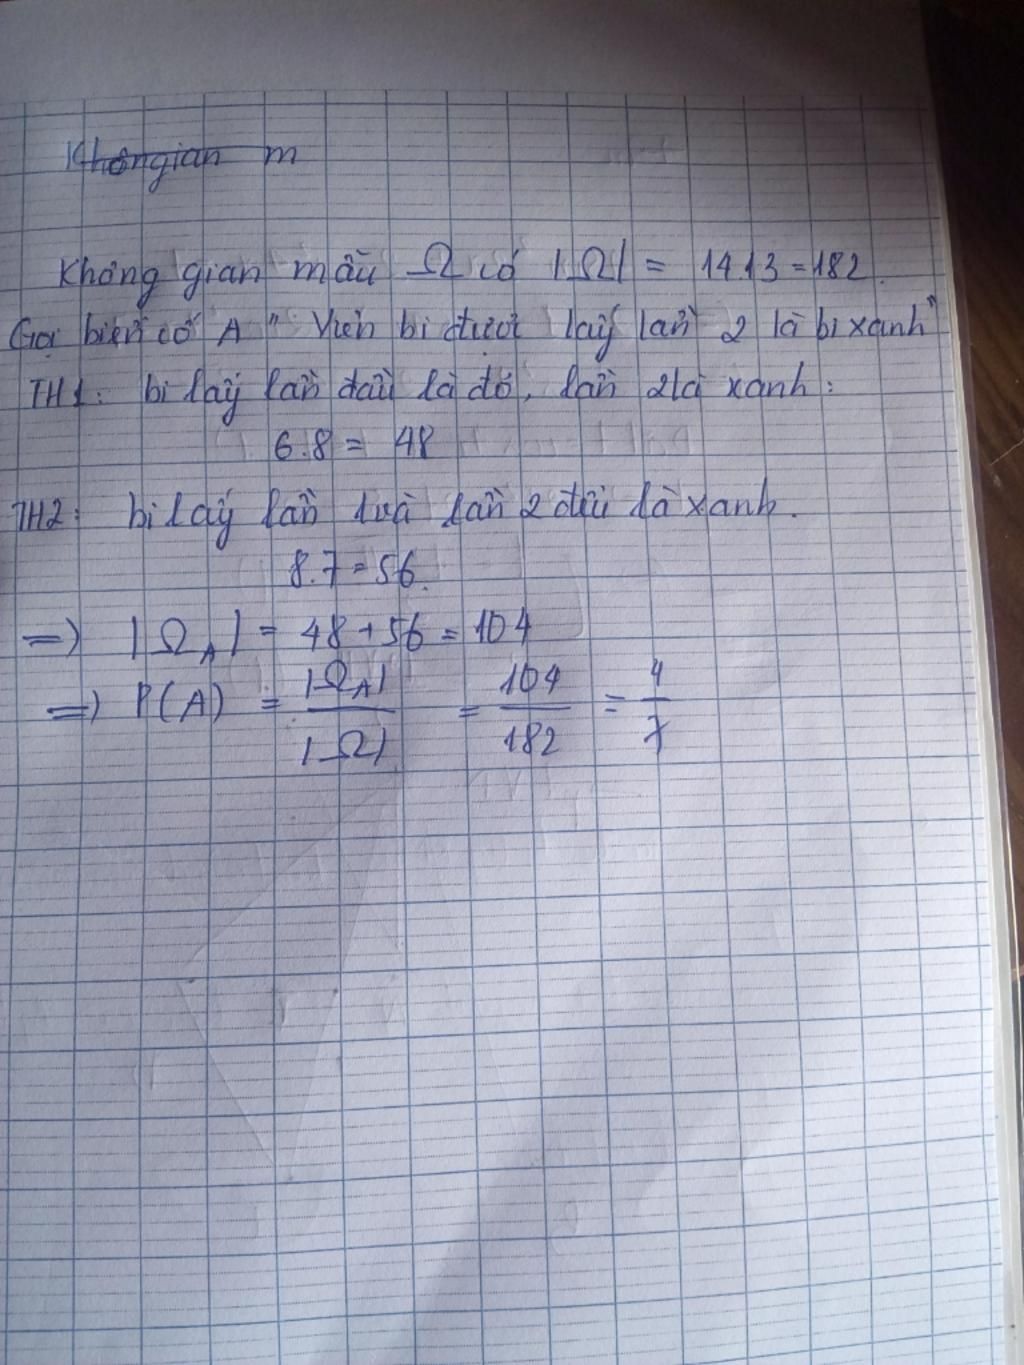 Không gian m
Không gian mẫu Ω có |Ω| = 14.13 = 182.
Gọi biến cố A "Viên bi được lấy lần 2 là bi xanh"
TH1: bi lấy lần đầu là đỏ, lần 2 là xanh:
6.8 = 48
TH2: bi lấy lần 1 và lần 2 đều là xanh.
8.7 = 56.
=> |Ω_A| = 48 + 56 = 104
=> P(A) = |Ω_A| / |Ω| = 104 / 182 = 4 / 7